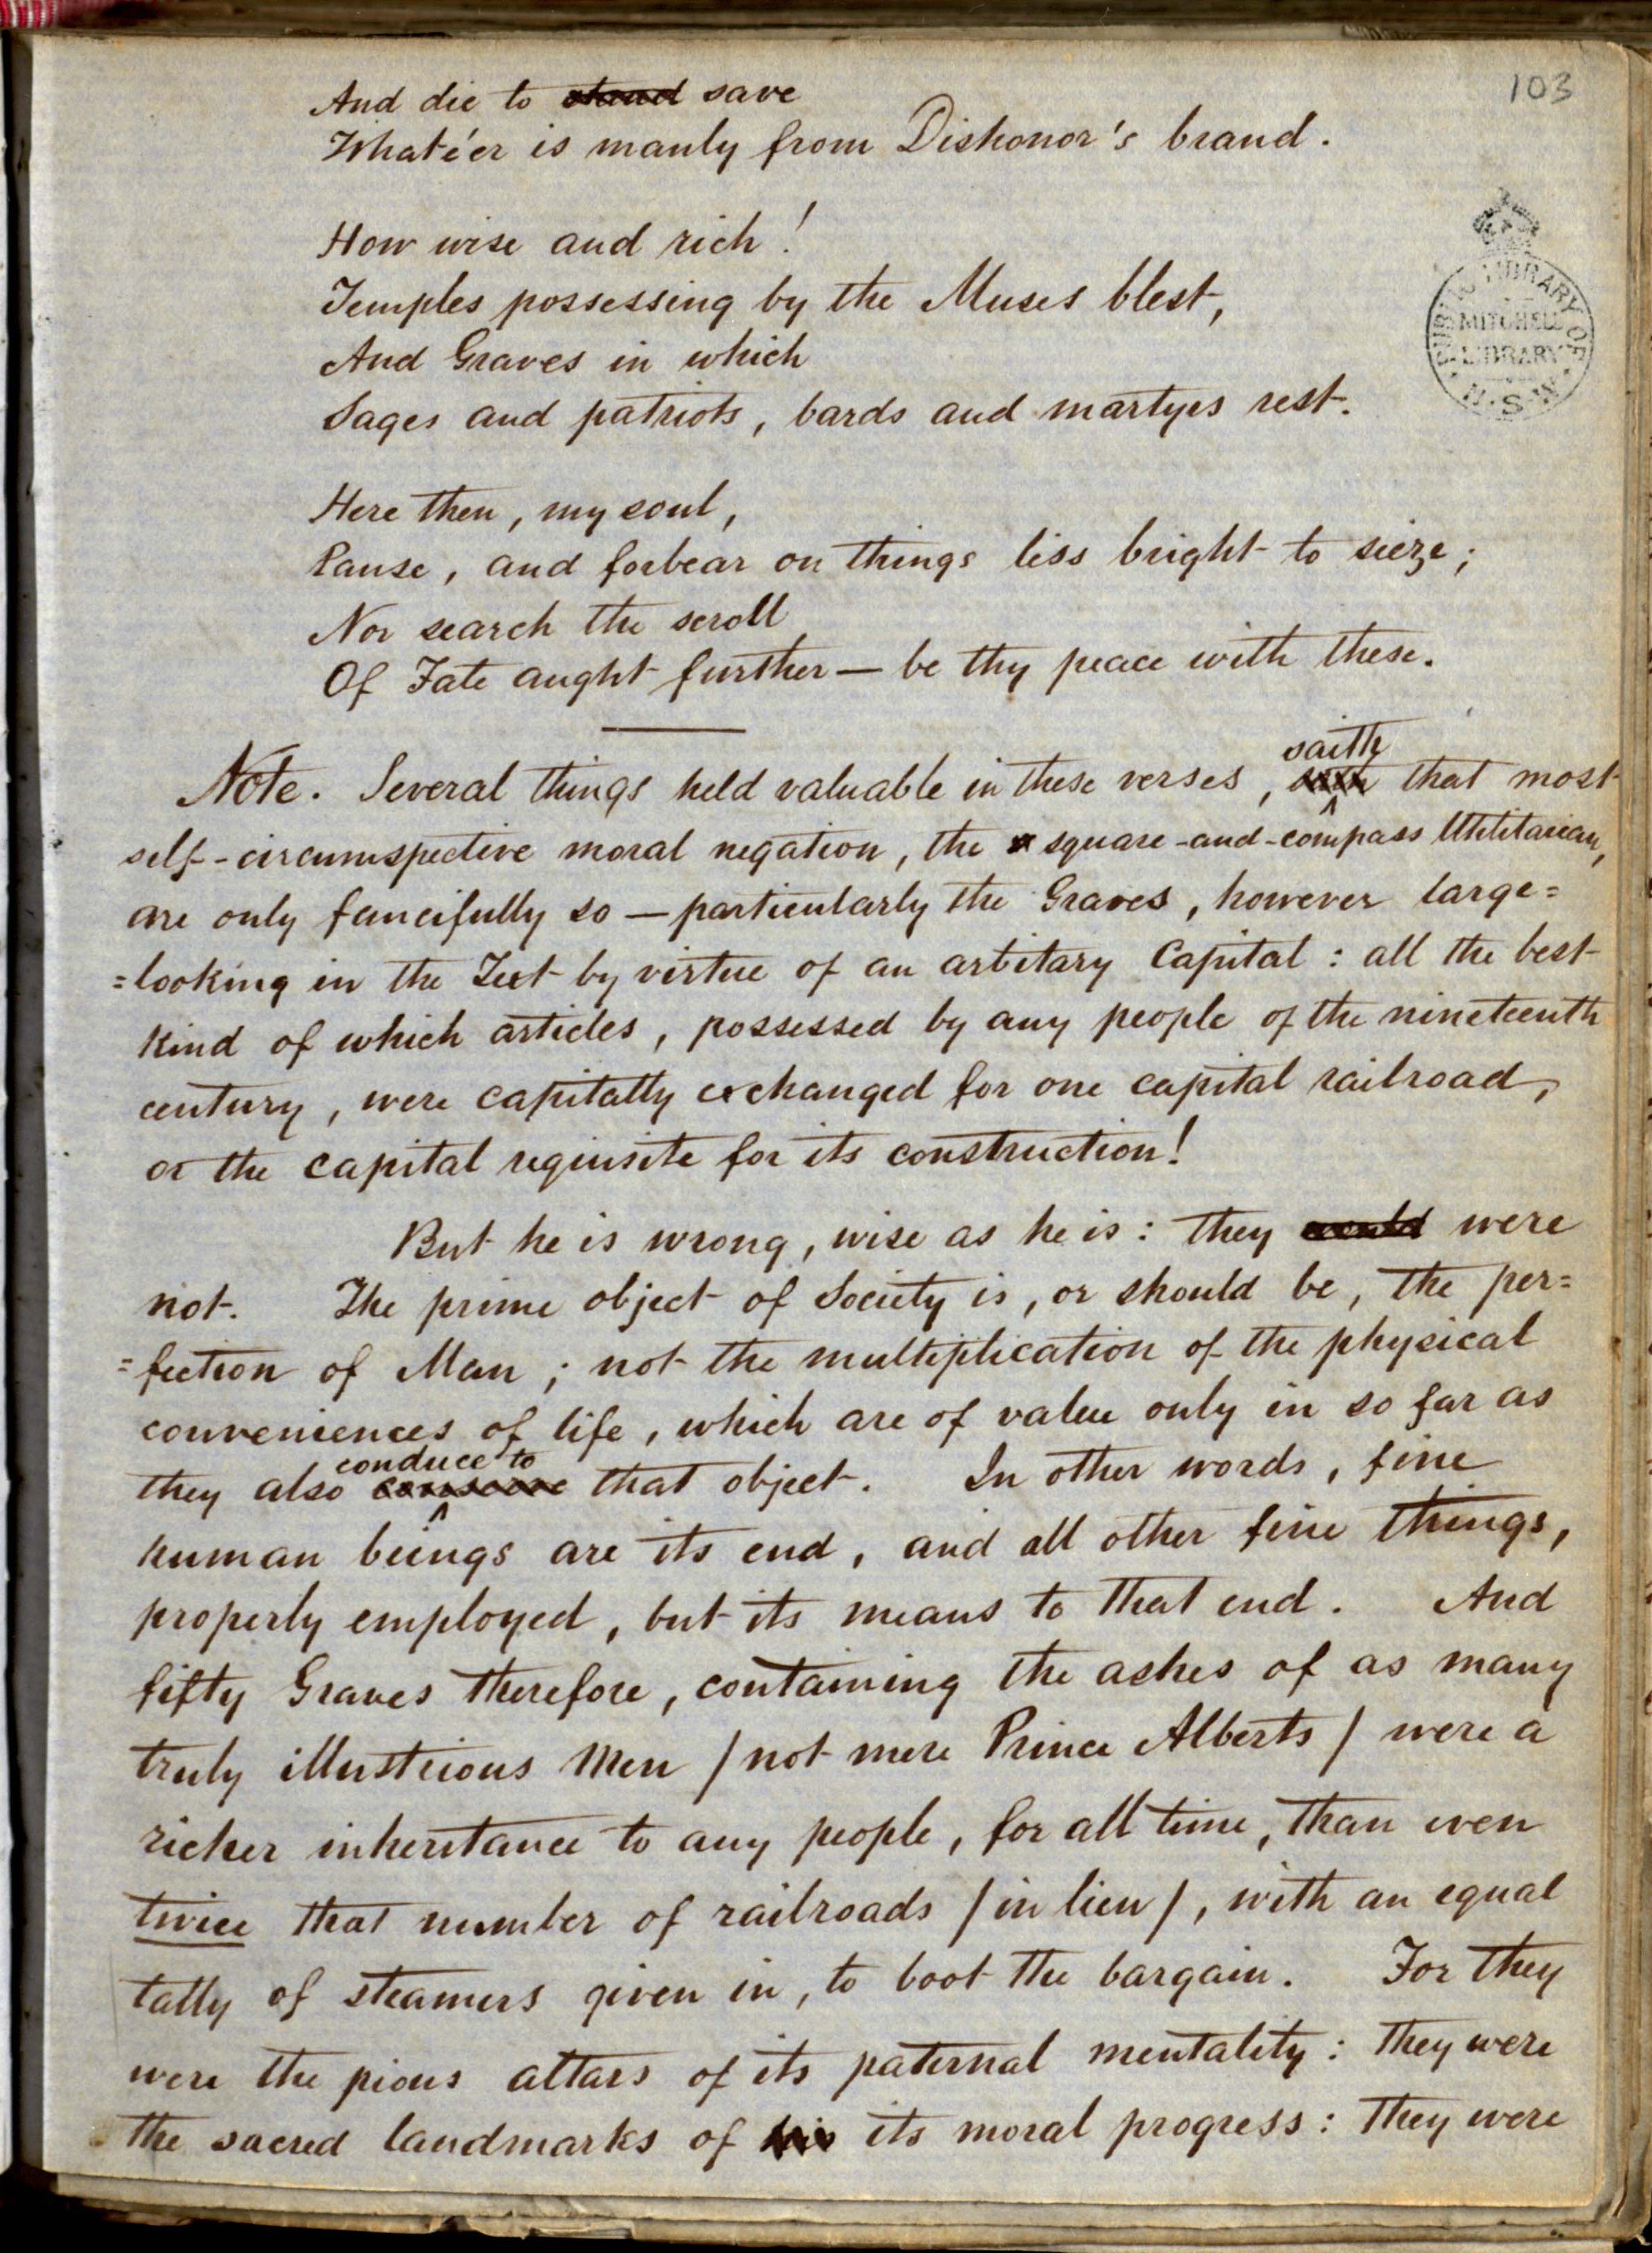 103
And die to stand save
Whate'er is manly from Dishonor's brand.
How wise and rich!
Temples possessing by the Muses blest,
And Graves in which
Sages and patriots, bards and martyrs rest.
PUBLIC LIBRARY OF
MITCHELL
LIBRARY
N.S.W
Here then, my soul,
Pause, and forbear on things less bright to sieze;
Nor search the scroll
Of Fate aught further — be thy peace with these.
saith
Note. Several things held valuable in these verses, that most
self-circumspective moral negation, the square-and-compass Utilitarian,
are only fancifully so — particularly the Graves, however large=
=looking in the Text by virtue of an arbitary Capital: all the best
kind of which articles, possessed by any people of the nineteenth
century, were capitally exchanged for one capital railroad,
or the capital requisite for its construction!
But he is wrong, wise as he is: they would were
not. The prime object of Society is, or should be, the per=
=fection of Man; not the multiplication of the physical
conveniences of life, which are of value only in so far as
conduce to
they also that object. In other words, fine
human beings are its end, and all other fine things,
properly employed, but its means to that end. And
fifty Graves therefore, containing the ashes of as many
truly illustrious Men / not mere Prince Alberts / were a
richer inheritance to any people, for all time, than even
twice that number of railroads / in lieu /, with an equal
tally of steamers given in, to boot the bargain. For they
were the pious altars of its paternal mentality: they were
the sacred landmarks of his its moral progress: they were